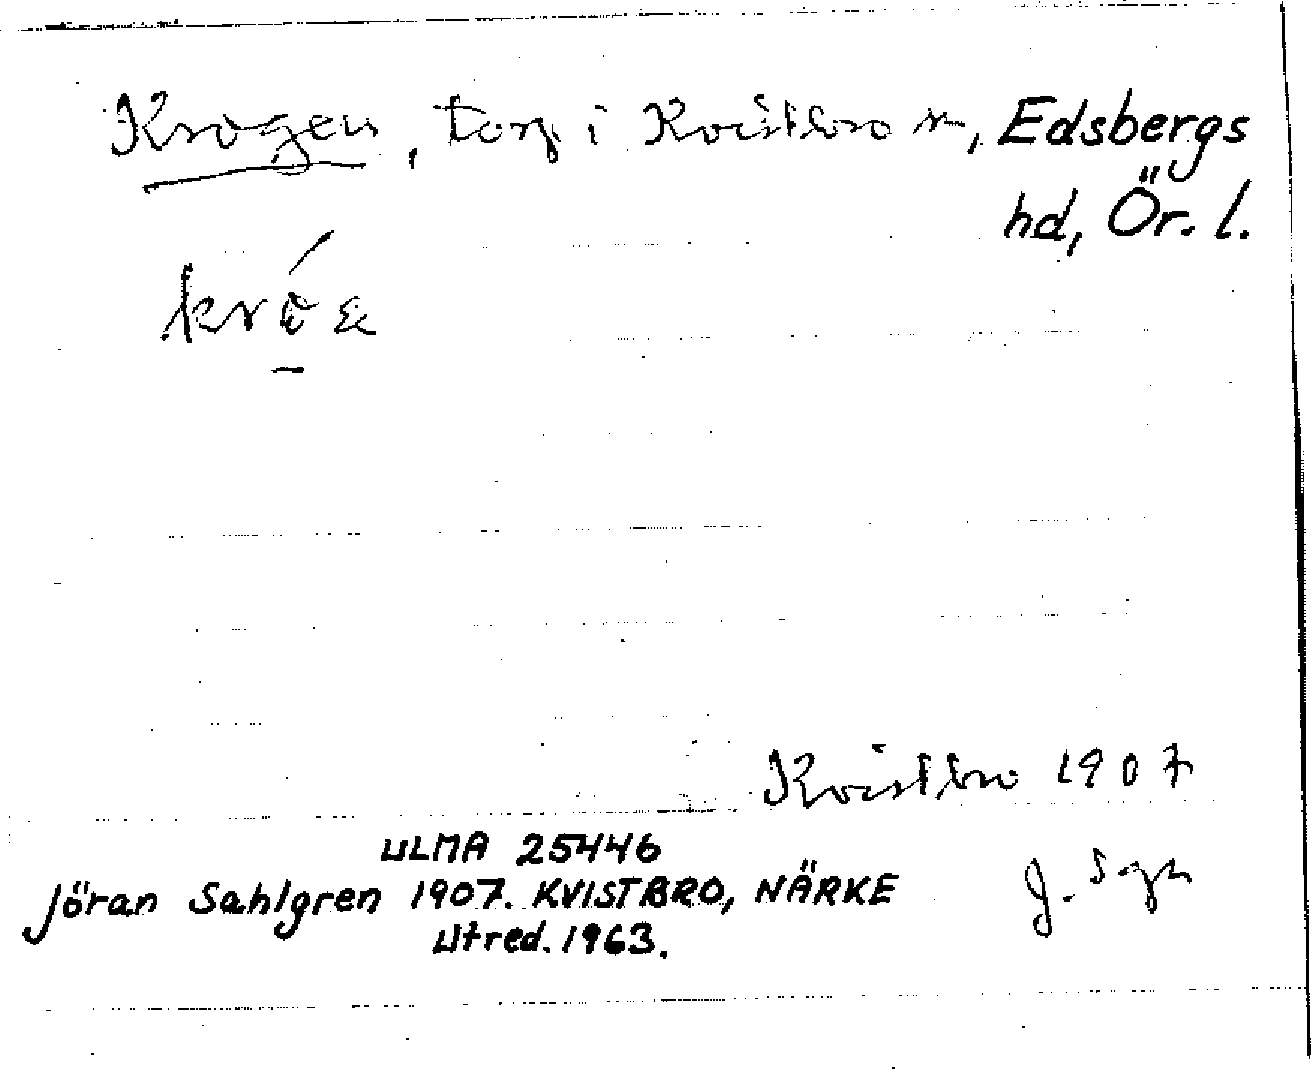 Krogen, torp i Kvistbro sn, Edsbergs
hd, Ör. l.
Kvistbro 1907
ULMA 25446
J. Sgn
Jöran Sahlgren 1907. KVISTBRO, NÄRKE
Utred. 1963.